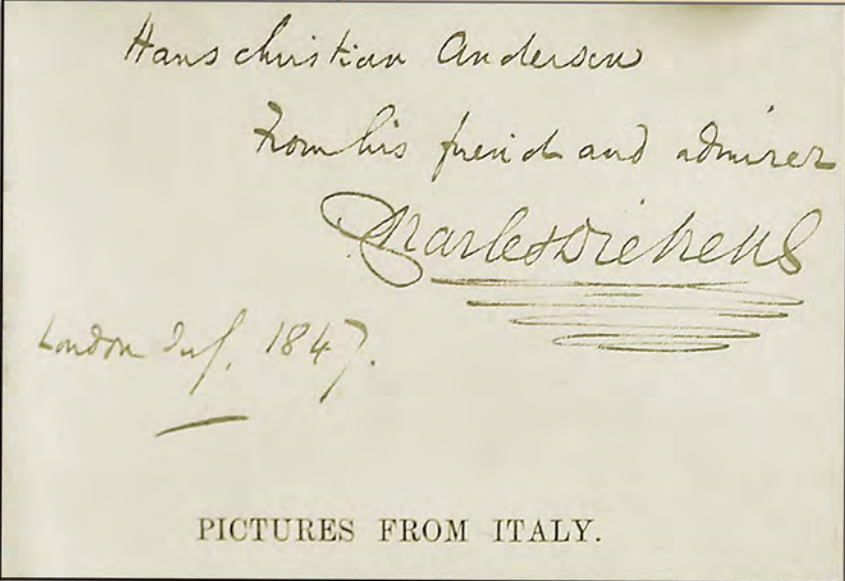 Hans christian Anderson
From his friend and admirer
Charles Dickens
London July. 1847.
PICTURES FROM ITALY.